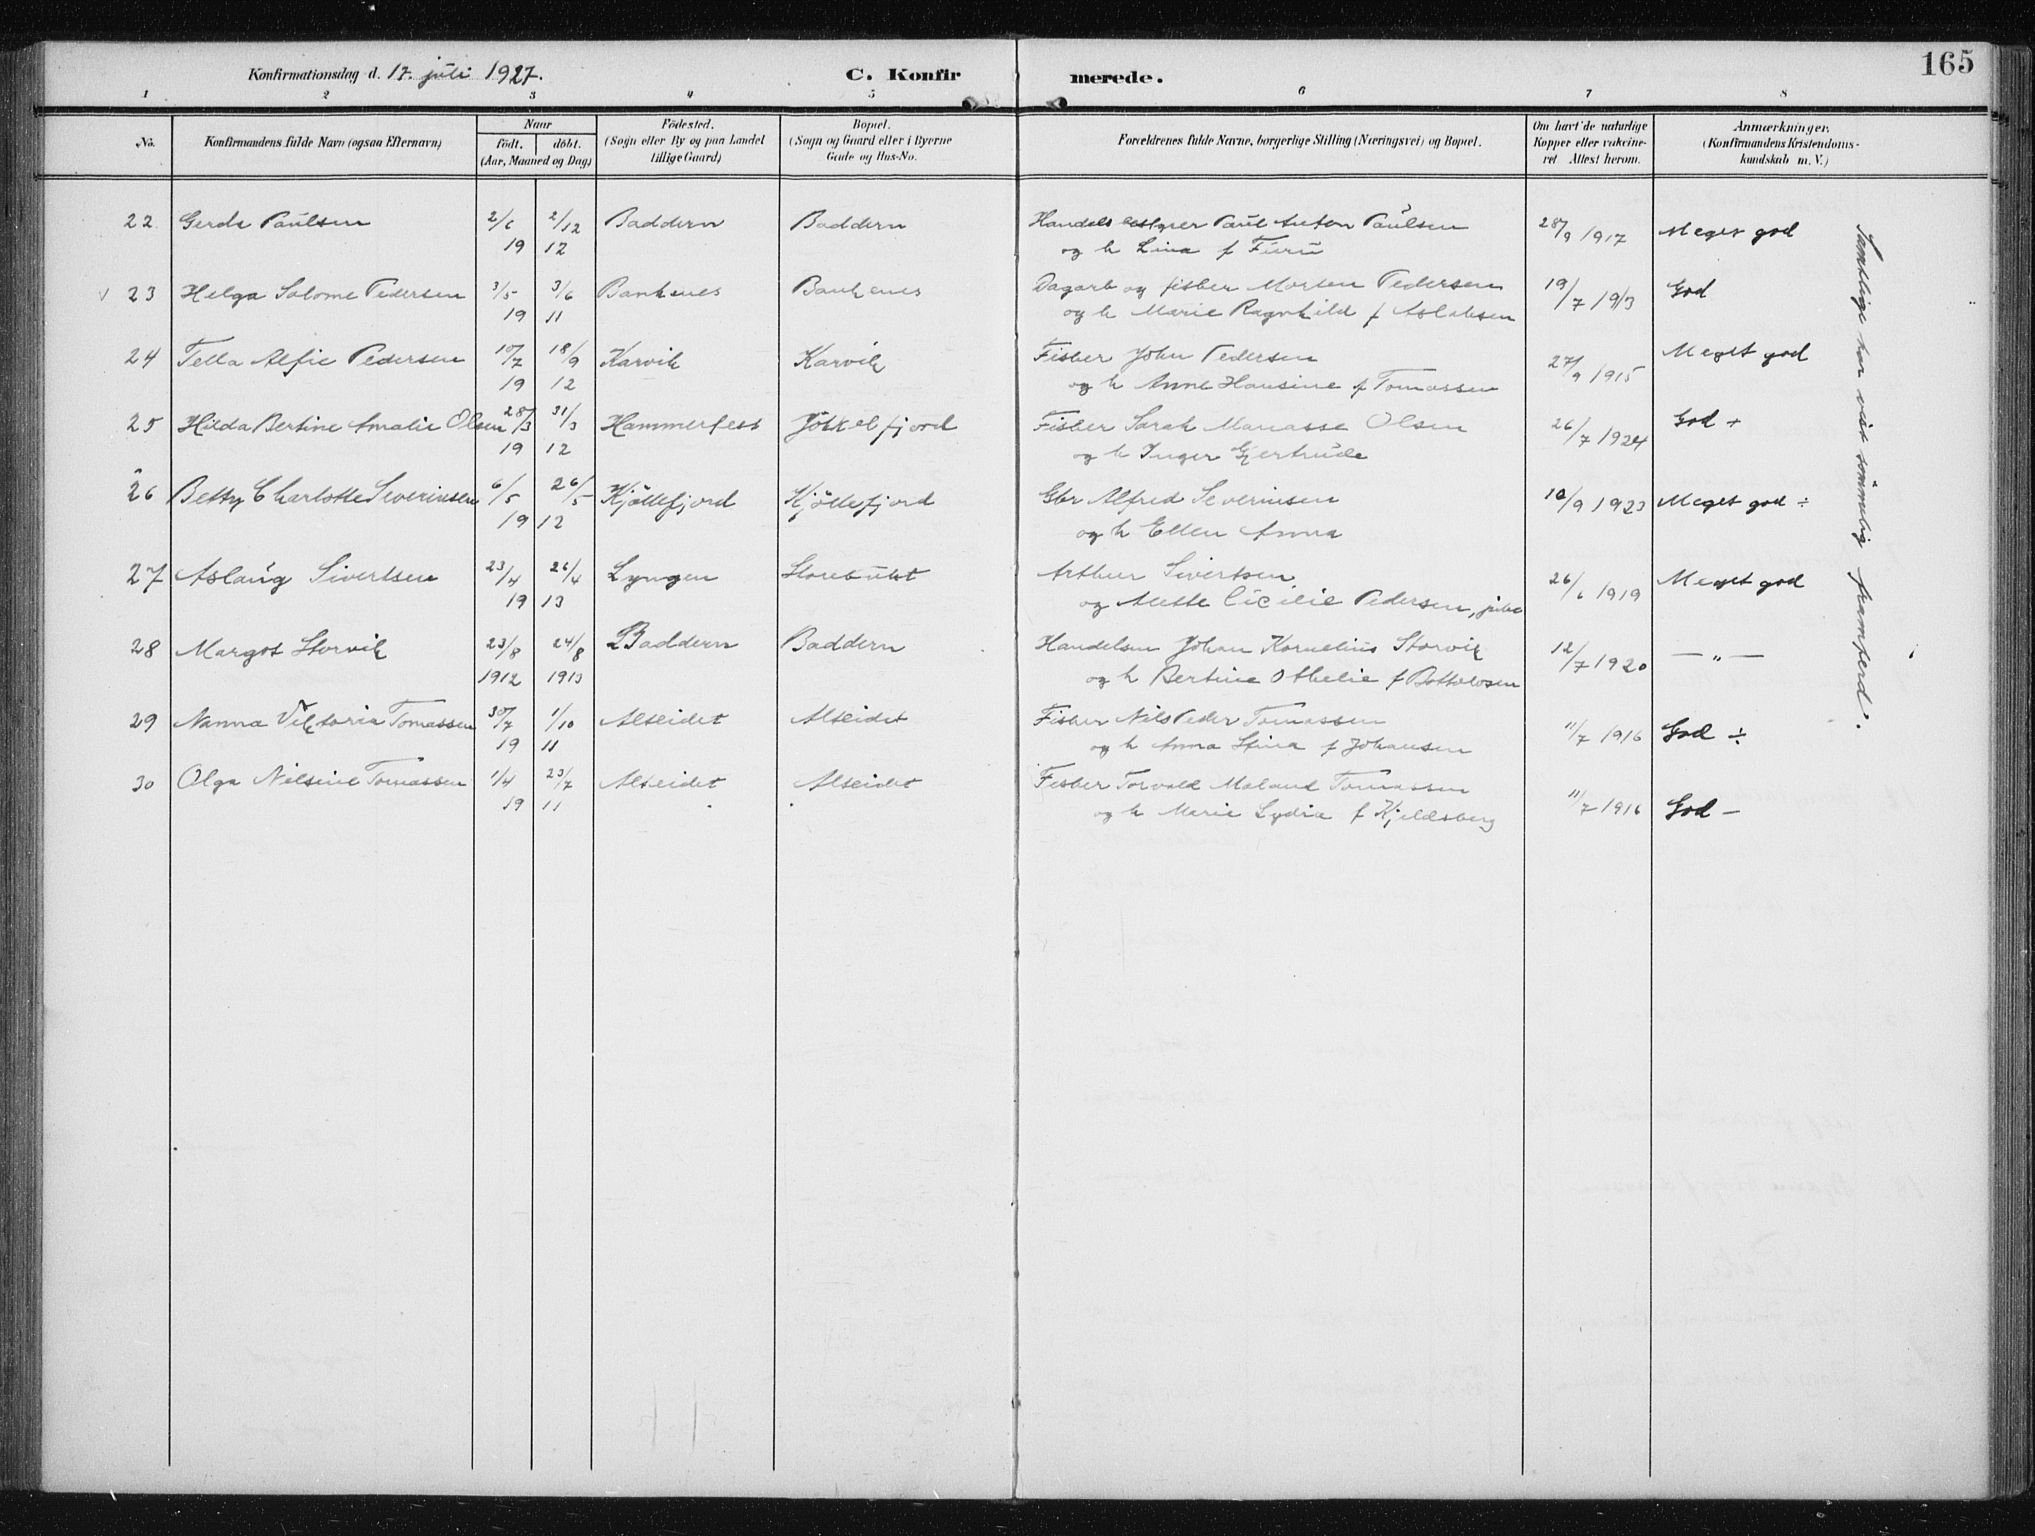 165
Konfirmationsdag d. 17. juli 1927. C. Konfirmerede.
1 2 3 4 5 6 7 8
No. Konfirmandens fulde Navn (ogsaa Efternavn) Naar født. døbt. (Aar, Maaned og Dag) Fødested. (Sogn eller By og paa Landet tillige Gaard) Bopæl. (Sogn og Gaard eller i Byerne Gade og Hus-No. Forældrenes fulde Navne, borgerlige Stilling (Næringsvei) og Bopæl. Om havt de naturlige Kopper eller vaccineret Attest herom. Anmærkninger. (Konfirmandens Kristendomskundskab m. V.)
22 Gerda Paulsen 2/6 2/12 Baddern Baddern Handels Paul Anton Paulsen 28/9 1917 Meget god
19 12 og h Lina f Furu
23 Helga Salome Pedersen 3/5 3/6 Bankenes Bankenes Dagarb og fisker Morten Pedersen 19/7 1913 God
19 11 og h Marie Ragnhild f Aslaksen
24 Tella Alfie Pedersen 10/7 18/9 Karvik Karvik Fisker John Pedersen 27/9 1915 Meget god
19 12 og h Anne Hansine f Tomassen
25 Hilda Bertine Amalie Olsen 28/3 31/3 Hammerfest Jökelfjord Fisker Sarak Manasse Olsen 26/7 1924 God +
19 12 og h Inger Gjertrude
26 Betty Charlotte Severinsen 6/5 26/5 Kjöllefjord Kjöllefjord Gbr Alfred Severinsen 10/9 1923 Meget god ÷
19 12 og h Ellen Anna
27 Aslaug Sivertsen 23/4 26/4 Lyngen Storebukt Arthur Sivertsen 26/6 1919 Meget god
19 13 og Anette Cicilie Pedersen,
28 Margot Storvik 23/8 24/8 Baddern Baddern Handelsm Johan Kornelius Storvik 12/7 1920 — „ —
1912 1913 og h Bertine Othelie f Bottolvsen
29 Nanna Viktoria Tomassen 30/7 1/10 Alteidet Alteidet Fisker Nils Peder Tomassen 11/7 1916 God ÷
19 11 og h Anna Stina f Johansen
30 Olga Nilsine Tomassen 1/4 23/7 Alteidet Alteidet Fisker Torvald Meland Tomassen 11/7 1916 God –
19 11 og h Marie Lydia f Kjeldsberg
Samtlige har vist sømmelig framferd.